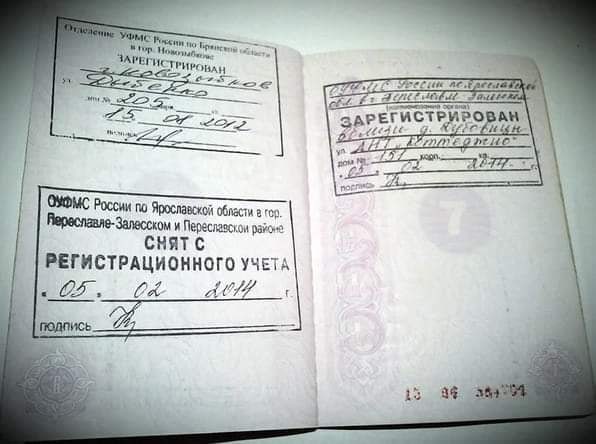 Отделение УФМС России по Брянской области
в гор. Новозыбкове
ЗАРЕГИСТРИРОВАН
г. Новозыбков
ул. Дыбенко
дом № 205
15 01 2012
подпись
ОУФМС России по Ярославской области в гор.
Переславле-Залесском и Переславском районе
СНЯТ С
РЕГИСТРАЦИОННОГО УЧЕТА
« 05 » 02 2014 г.
подпись
ОУФМС России по Ярославской
обл. в г. Переславле-Залесском
(наименование органа)
ЗАРЕГИСТРИРОВАН
д.
ул. ДНТ "Коттеджно"
дом № 151 корп. кв.
« 05 » 02 2014 г.
подпись
7
15 06